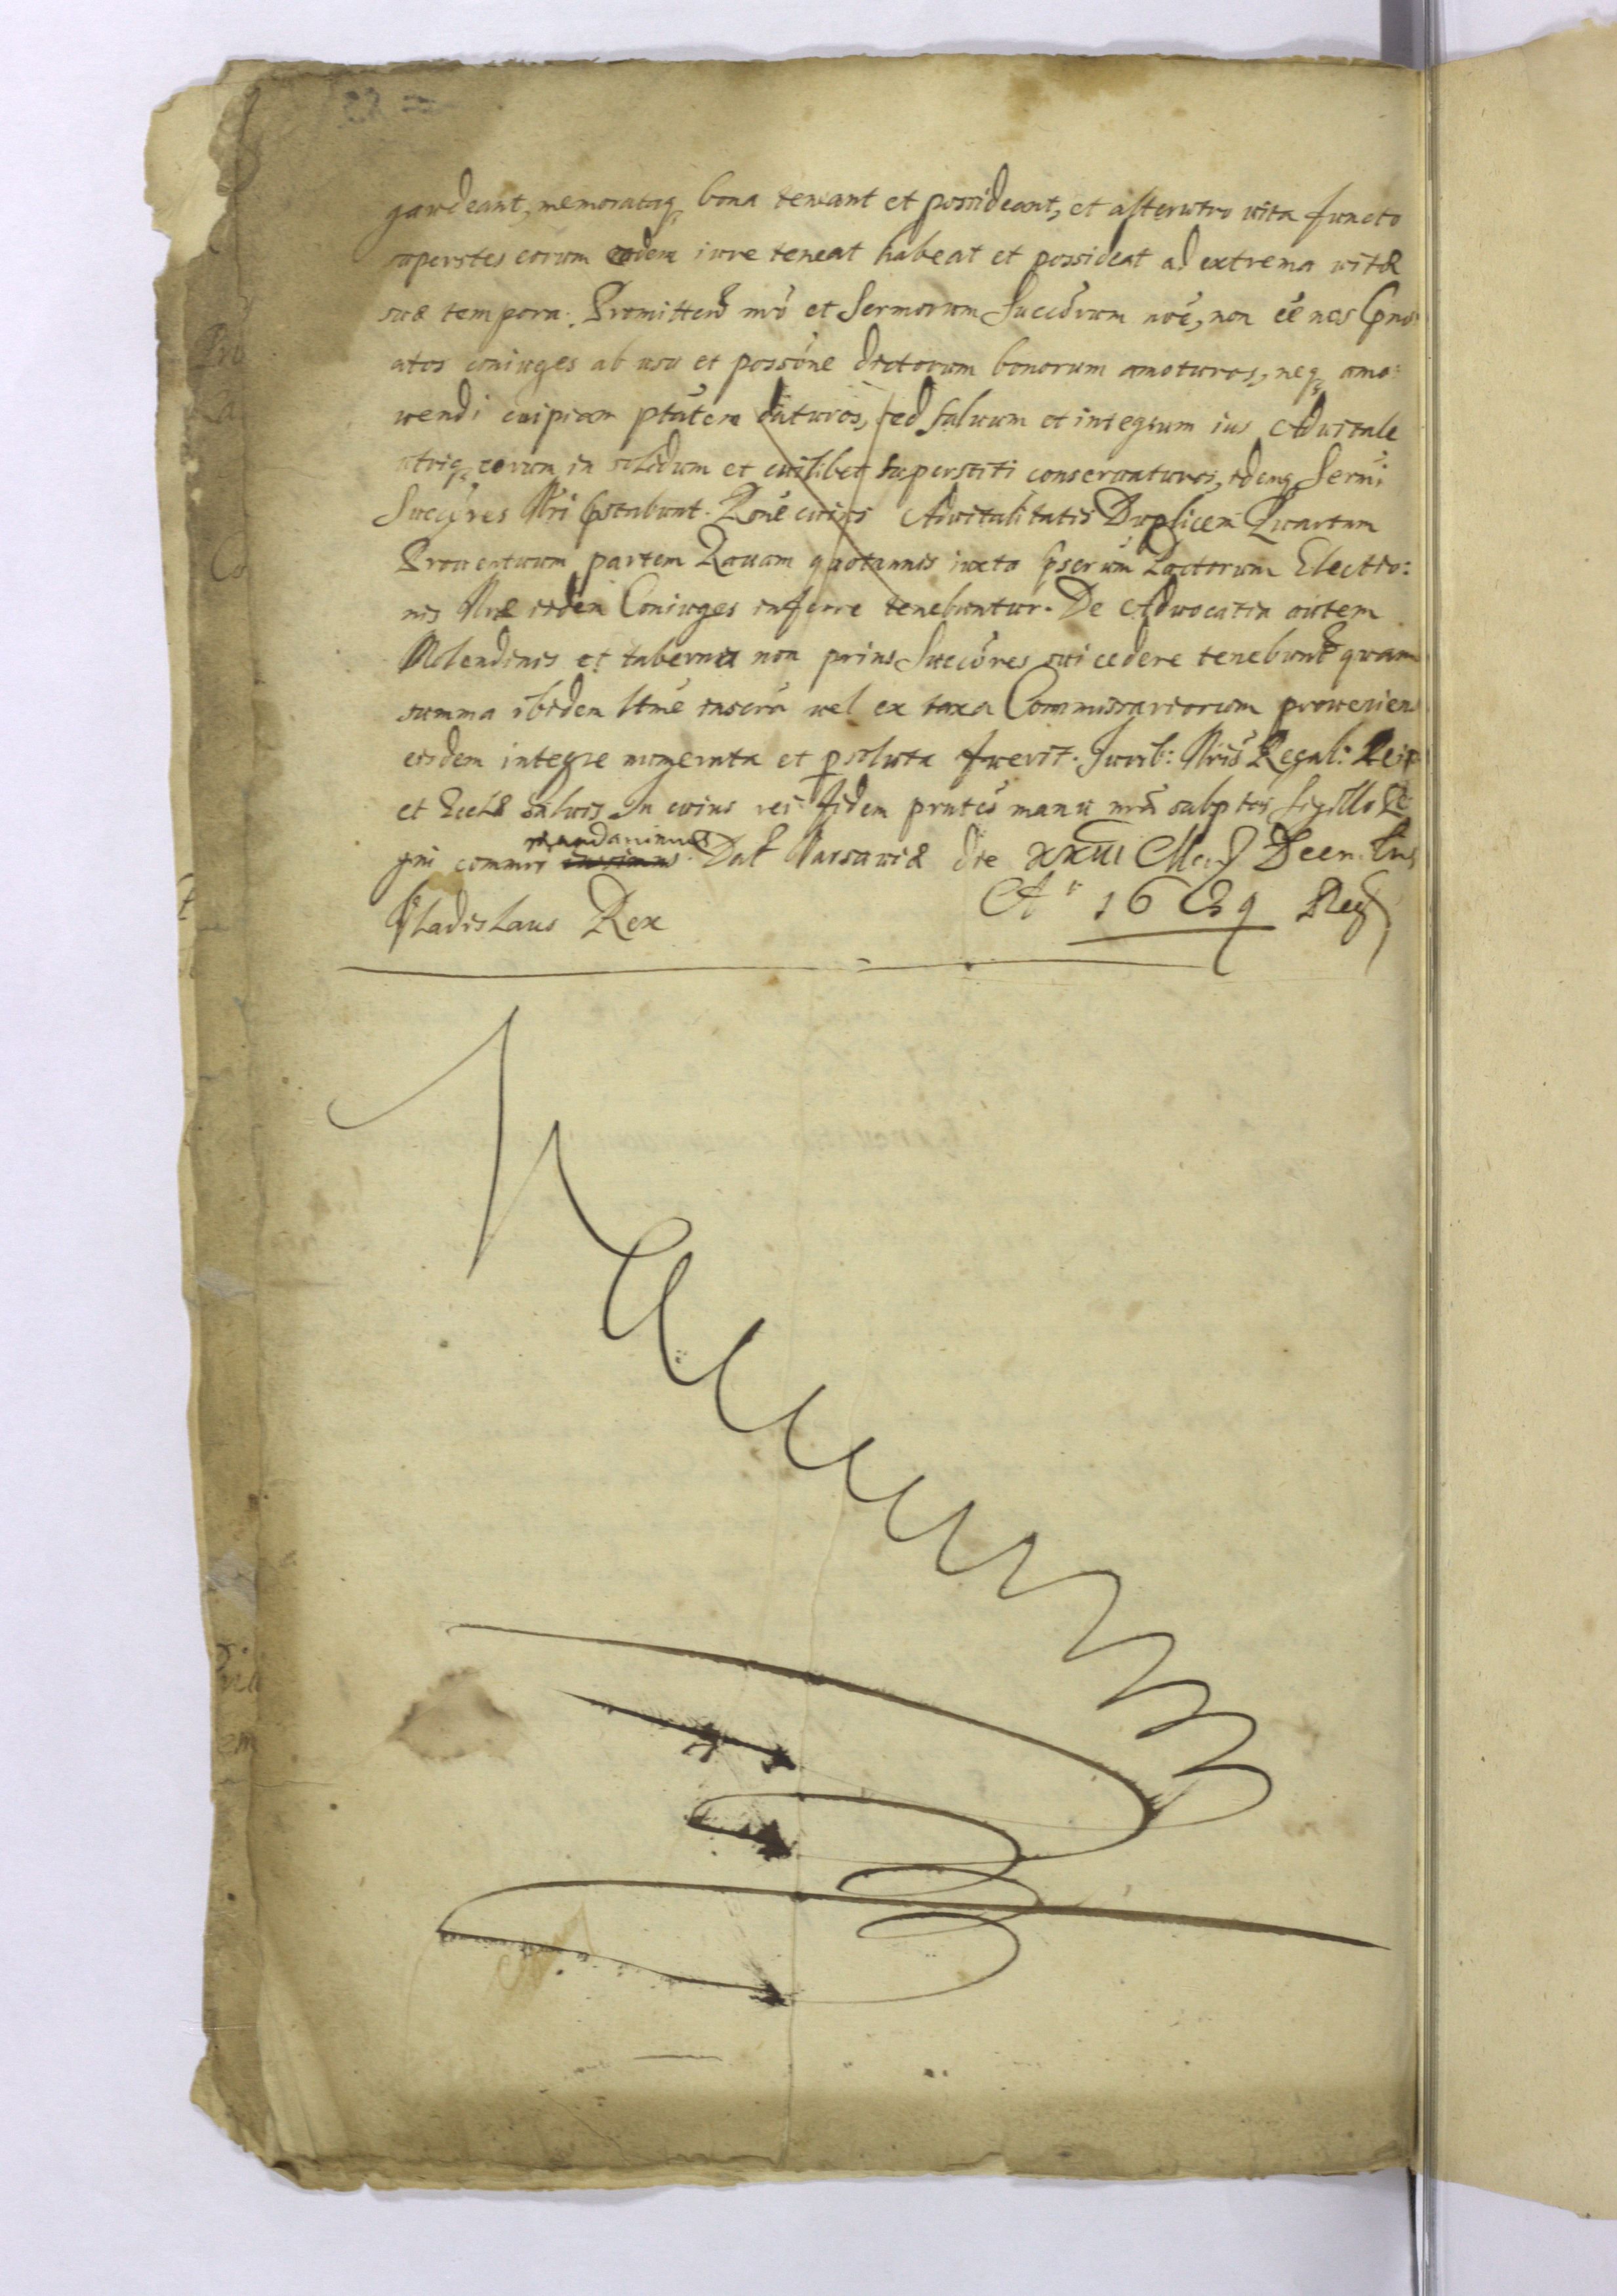 gaudeant, memorataq bona teneant et possideant, et alterutro vita functo
superstes eorum eodem iure teneat habeat et possideat ad extrema vitæ
suæ tempora. Promitten nrō et Sermorum Succōrum noē, non eē nos
atos coniuges ab usu et possōne dictorum bonorum amoturos, neq amo:
vendi cuipiam ptātem daturos, sed salvum et integrum ius Advitale
utriq eorum in solidum et cuilibet superstiti conservaturos, idemq Sermi
Succōres Nri pstabunt. Rōne cuius Advitalitatis Duplicem Quartam
Proventuum partem Ravam quotannis iuxta Pactorum Electio:
nis Nræ iidem Coniuges inferre tenebuntur. De Advocatia autem
Molendinis et taberna non prius Succōres sui cedere tenebunt quam
summa ibidem ltme inscra vel ex taxa Commissariorum proveniens
eisdem integre numerata et persoluta fuerit. Iurib: Nris Regal: Reip
et Eccłæ salvis. In cuius rei fidem pntes manu nra subptas sigillo Re
gni commr mandavimus. Dat Varsaviæ die XXIII Men Decembris
Vladislaus Rex
A° 1639 Reg